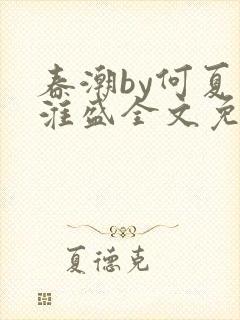 春潮by何夏
淮盛全文免
夏德克